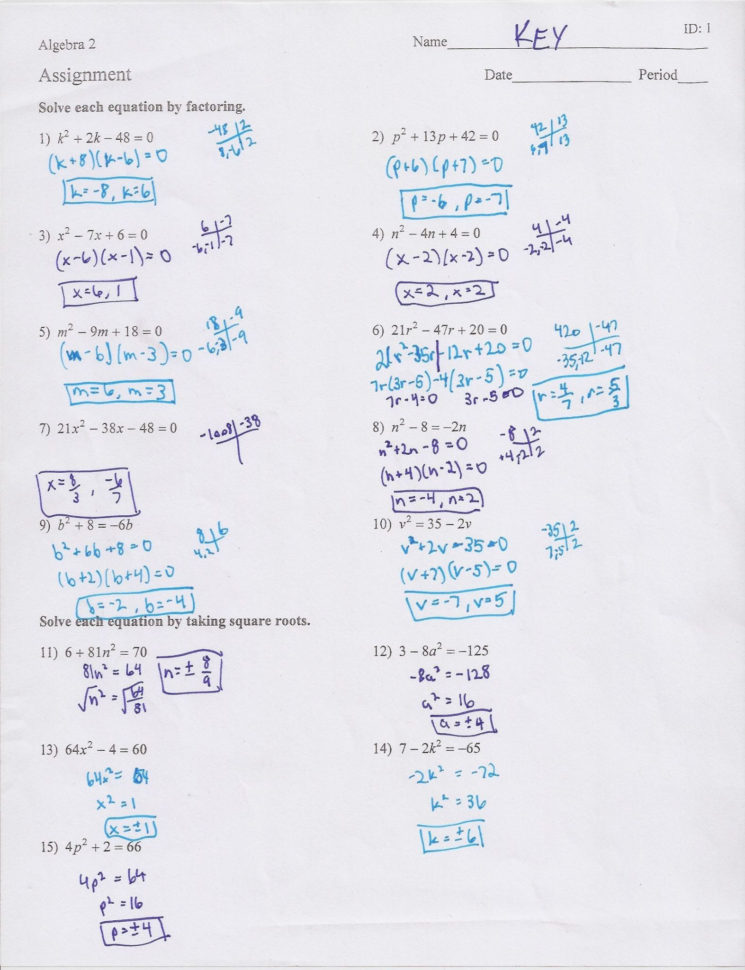 ID: 1
Algebra 2
Name KEY
Assignment
Date Period
Solve each equation by factoring.
1) k² + 2k − 48 = 0
-48 | 2
8,-6 | 2
(k+8)(k-6)=0
k=-8, k=6
2) p² + 13p + 42 = 0
42 | 13
| 13
(p+6)(p+7)=0
p=-6, p=-7
3) x² − 7x + 6 = 0
6 | -7
-6,-1 | -7
(x-6)(x-1)=0
x=6, 1
4) n² − 4n + 4 = 0
4 | -4
-2,-2 | -4
(x-2)(x-2)=0
x=2, x=2
5) m² − 9m + 18 = 0
18 | -9
-6,-3 | -9
(m-6)(m-3)=0
m=6, m=3
6) 21r² − 47r + 20 = 0
420 | -47
-35,-12 | -47
21r²-35r -12r+20=0
7r(3r-5)-4(3r-5)=0
7r-4=0 3r-5=0
r=4/7, r=5/3
7) 21x² − 38x − 48 = 0
-1008 | -38
x=8/3, -6/7
8) n² − 8 = −2n
-8 | 2
+4,-2 | 2
n²+2n-8=0
(n+4)(n-2)=0
n=-4, n=2
9) b² + 8 = −6b
8 | 6
4,2 |
b²+6b+8=0
(b+2)(b+4)=0
b=-2, b=-4
10) v² = 35 − 2v
-35 | 2
7,-5 | 2
v²+2v-35=0
(v+7)(v-5)=0
v=-7, v=5
Solve each equation by taking square roots.
11) 6 + 81n² = 70
81n² = 64
√n² = √64/81
n=± 8/9
12) 3 − 8a² = −125
-8a² = -128
a² = 16
a=±4
13) 64x² − 4 = 60
64x² = 64
x² = 1
x=±1
14) 7 − 2k² = −65
-2k² = -72
k² = 36
k=±6
15) 4p² + 2 = 66
4p² = 64
p² = 16
p=±4